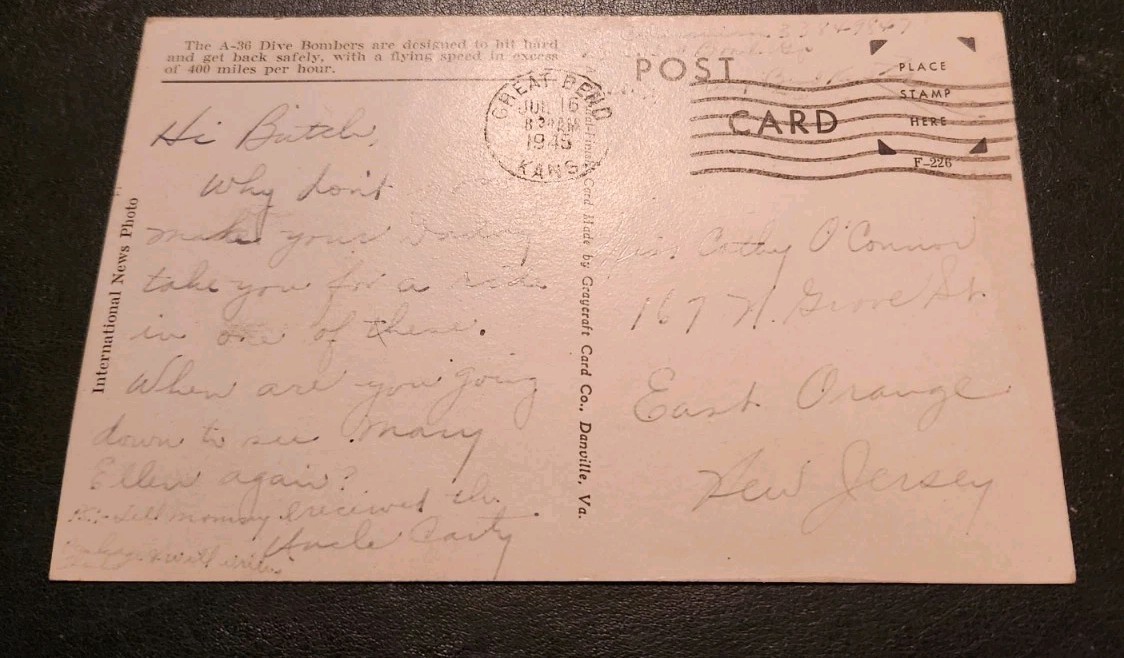 The A-36 Dive Bombers are designed to hit hard
and get back safely, with a flying speed in excess
of 400 miles per hour.
International News Photo
Hi Butch,
Why don't
make your Daddy
take you for a ride
in one of these.
When are you going
down to see Mary
Ellen again?
Tell Mommy I received the
will write
Uncle
GREAT BEND
16
1945
KANS
Card Made by Graycraft Card Co., Danville, Va.
POST CARD
PLACE
STAMP
HERE
F-226
Cathy O'Connor
167 N. Grove St.
East Orange
New Jersey